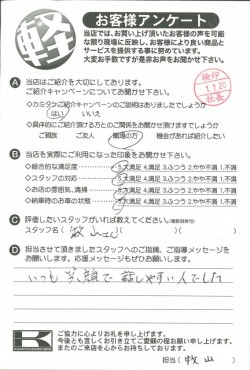 軽
お客様アンケート
当店では、お買い上げ頂いたお客様の声を可能
な限り現場に反映し、お客様により良い商品と
サービスを提供する事に努めています。
大変お手数ですが是非お声をお聞かせ下さい。
A 当店はご紹介を大切にしてあります。
ご紹介キャンペーンについてお聞かせ下さい。
検印
1.7.20
社長
◇カミタケご紹介キャンペーンのご説明はありましたでしょうか
はい いいえ
◇具体的にご紹介頂ける方とのご関係をお聞かせ頂けますでしょうか
ご親族 ご友人 職場の方 機会があれば紹介したい
B 当店を実際にご利用になった印象をお聞かせ下さい。
◇総合的な満足度 5.大満足 4.満足 3.ふつう 2.やや不満 1.不満
◇スタッフの対応 5.大満足 4.満足 3.ふつう 2.やや不満 1.不満
◇お店の雰囲気、清掃 5.大満足 4.満足 3.ふつう 2.やや不満 1.不満
◇納車時のお車の状態 5.大満足 4.満足 3.ふつう 2.やや不満 1.不満
C 評価したいスタッフがいれば教えてください。
スタッフ名( 牧山さん )( )( )
D 担当させて頂きましたスタッフへのご指摘、ご指導メッセージを
お願いします。応援メッセージもぜひお願いします。
いつも笑顔で話しやすい人でした
K
ご協力に心よりお礼を申し上げます。
今後とも宜しくお引き立てご愛顧の程お願い申し上げます。
またのご来店を心からお待ちしております。
担当( 牧山 )